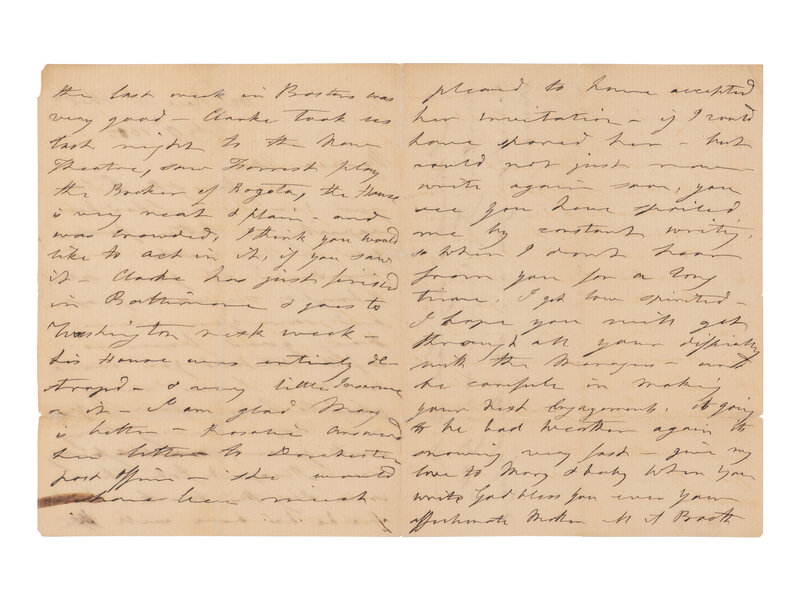 the last week in Boston was
very good - Clarke took us
last night to the New
Theatre, saw Forrest play
the Broker of Bogota, the House
is very neat & plain - and
was crowded, I think you would
like to act in it, if you saw
it - Clarke has just finised
in Baltimore & goes to
Washington next week -
his House was entirely de-
stroyd - & very little Insurance
on it - I am glad Mary
is better - Rosalie answered
her letter to Dorchester
post office - she would
have been much
pleased to have accepted
her invitation - if I could
have spared her - but
could not just now -
write again soon, you
see you have spoiled
me by constant writing,
so when I don't hear
from you for a long
time, I get low spirited -
I hope you will get
through all your difficulty
with the Managers - and
be careful in making
your next Engagements. it going
to be bad weather again its
snowing very fast - give my
love to Mary & baby when you
write God bless you ever your
affectionate Mother M A Booth